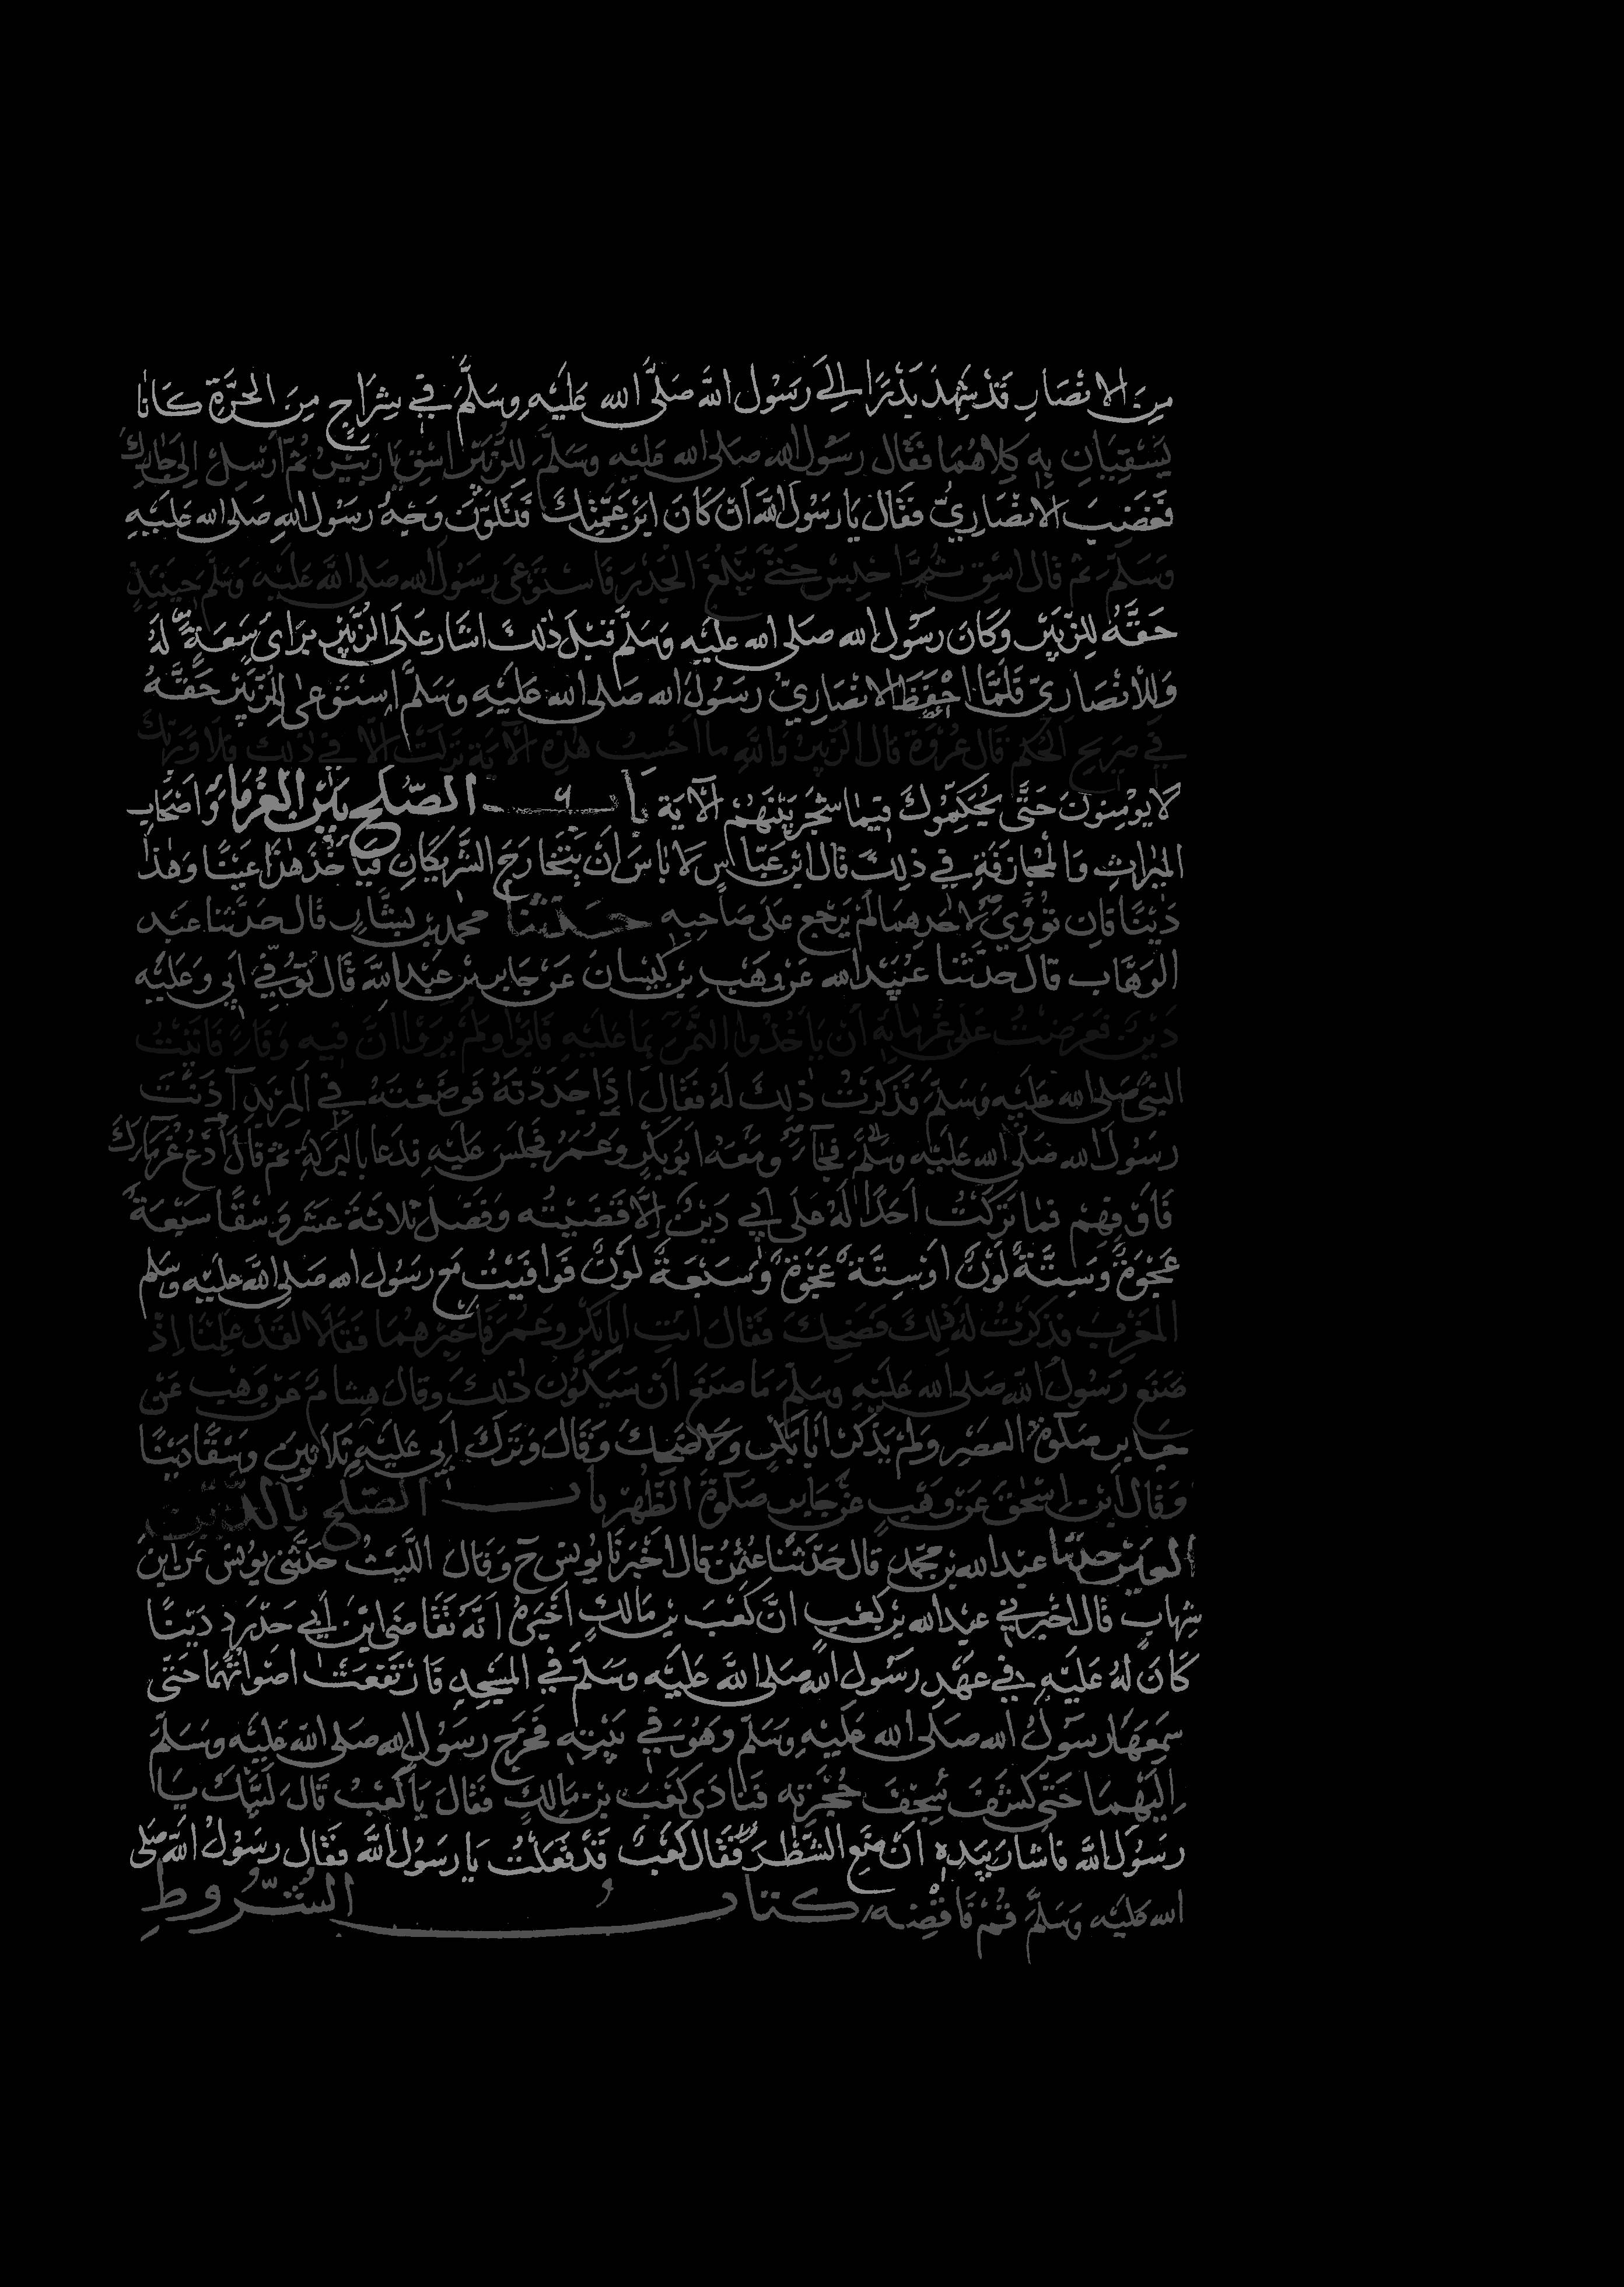 مِنَ الانْصَارِ قَدْ شَهِدَ بَدْرًا اِلَى رَسُولِ اللهِ صَلَّى الله عَلَيْهِ وَسَلَّمَ فِي شِرَاجٍ مِنَ الحَرَّةِ كَانَا
يَسْقِيَانِ بِهِ كِلَاهُمَا فَقَالَ رَسُولُ الله صَلى الله عَلَيْهِ وَسَلَّمَ لِلزُّبَيْرِ اسْقِ يَا زُبَيْرُ ثُمَّ اَرْسِلْ اِلَى جَارِكَ
فَغَضِبَ الانْصَارِيُّ فَقَالَ يَا رَسُولَ اللهِ اَنْ كَانَ ابْنَ عَمَّتِكَ فَتَلَوَّنَ وَجْهُ رَسُولِ اللهِ صَلى الله عَلَيْهِ
وَسَلَّمَ ثُمَّ قَالَ اسْقِ ثُمَّ احْبِسْ حَتَّى يَبْلُغَ الجَدْرَ فَاسْتَوْعَى رَسُولُ الله صَلى اللهُ عَلَيْهِ وَسَلَّمَ حِينَئِذٍ
حَقَّهُ لِلزُّبَيْرِ وَكَانَ رَسُولُ الله صَلى الله عليْهِ وَسَلَّمَ قَبْلَ ذٰلِكَ اشَارَ عَلَى الزُّبَيْرِ بِرَايٍ سَعَةٍ لَهُ
وَلِلانْصَارِيِّ فَلَمَّا احْفَظَ الانْصَارِيُّ رَسُولَ الله صَلى الله عَلَيْهِ وَسَلَّمَ اسْتَوْعٰى لِلزُّبَيْرِ حَقَّهُ
فِي صَرِيحِ الحُكْمِ قَالَ عُرْوَةُ قَالَ الزُّبَيْرُ وَاللهِ ما احْسِبُ هٰذِهِ الآيَةَ نَزَلَتْ اِلَّا فِي ذٰلِكَ فَلَا وَرَبِّكَ
لَا يُوْمِنُونَ حَتَّى يُحَكِّمُوكَ فِيمَا شَجَرَ بَيْنَهُمْ الآيَة بَابُ الصُّلْحِ بَيْنَ الغُرَمَا وَاصْحَابِ
المِيرَاثِ وَالمُجَازَفَةِ فِي ذٰلِكَ قَالَ ابْنُ عَبَّاسٍ لَا بَاسَ اَنْ يَتَخَارَجَ الشَّرِيكَانِ فَيَاخُذَ هٰذَا عَيْنًا وَهٰذَا
دَيْنًا فَانْ تَوَِي لِاحَدِهِمَا لَمْ يَرْجِعْ عَلَى صَاحِبِهِ حَدَّثَنَا محمد بن بَشَّارٍ قَالَ حَدَّثَنَا عَبْد
الوَهَّابِ قَالَ حَدَّثَنَا عُبَيْد الله عَنْ وَهْبِ بْنِ كَيْسَانَ عَنْ جَابِرِ بْنِ عَبْدِ اللهِ قَالَ تُوُفِّيَ اَبِي وَعَلَيْهِ
دَيْنٌ فَعَرَضْتُ عَلَى غُرَمَائِهِ اَنْ يَاخُذُوا التَّمْرَ بِمَا عَلَيْهِ فَابَوْا وَلَمْ يَرَوْا انَّ فِيهِ وَفَاءً فَاتَيْتُ
النبِيَّ صَلى الله عَلَيْهِ وَسَلَّمَ فَذَكَرْتُ ذٰلِكَ لَهُ فَقَالَ اذَا جَدَدْتَهُ فَوَضَعْتَهُ فِي المِرْبَدِ آذَنْتَ
رَسُولَ الله صَلَّى الله عَلَيْهِ وَسَلَّمَ فَجَاءَ وَمَعَهُ ابُوبَكْرٍ وَعُمَرُ فَجَلَسَ عَلَيْهِ فَدَعَا بِالبَرَكَةِ ثُمَّ قَالَ ادْعُ غُرَمَاءَكَ
فَاوْفِهِمْ فَمَا تَرَكْتُ احَدًا لَهُ عَلَى اَبِي دَيْنٌ اِلَّا قَضَيْتُه وَفَضَلَ ثَلَاثَةَ عَشَرَ وَسْقًا سَبْعَةٌ
عَجْوَةٌ وَسِتَّةٌ لَوْنٌ اوْ سِتَّةٌ عَجْوَةٌ وَسَبْعَةٌ لَوْنٌ فَوَافَيْتُ مَع رَسُولِ الله صَلى اللهُ عليْهِ وسَلم
المَغْرِبَ فَذَكَرْتُ لَهُ ذٰلِكَ فَضَحِكَ فَقَالَ ائْتِ ابَا بَكْرٍ وَعُمَرَ فَاخْبِرْهُمَا فَقَالَا لَقَدْ عَلِمْنَا اِذْ
صَنَعَ رَسُولُ اللهِ صَلى الله عَلَيْهِ وسَلَّمَ مَا صَنَعَ اَنْ سَيَكُونُ ذٰلِكَ وَقَالَ هِشَامٌ عَنْ وَهْبٍ عَنْ
جَابِرٍ صَلَوةَ العَصْرِ وَلَمْ يَذْكُرْ ابَا بَكْرٍ وَلَا ضَحِكَ وَقَالَ وَتَرَكَ اَبِي عَلَيْهِ ثَلَاثِينَ وَسْقًا دَيْنًا
وَقَالَ ابْنُ اِسْحٰقَ عَنْ وَهْبٍ عَنْ جَابِرٍ صَلَوةَ الظُّهْرِ بَابُ الصُّلْحِ بِالدَّيْنِ
والعين حدثنا عبد الله بن مُحَمَّدٍ قَالَ حَدَّثَنَا عُثْمٰنُ قَالَ اخْبَرَنَا يُونُسُ ح وَقَالَ اللَّيْثُ حَدَّثَنِي يُونُسُ عَنِ ابْنِ
شِهَابٍ قَالَ اخْبَرَنِي عَبْد الله بْنُ كَعْبٍ انَّ كَعْبَ بْنَ مَالِكٍ اَخْبَرَهُ انَّهُ تَقَاضَى ابْنَ اَبِي حَدْرَدٍ دَيْنًا
كَانَ لَهُ عَلَيْهِ فِي عَهْدِ رَسُولِ اللهِ صَلى اللهُ عَلَيْهِ وَسَلَّمَ فِي المَسْجِدِ فَارْتَفَعَتْ اصْوَاتُهُمَا حَتَّى
سَمِعَهَا رَسُولُ الله صَلَى الله عَلَيْهِ وَسَلَّمَ وَهُوَ فِي بَيْتِهِ فَخَرَجَ رَسُولُ اللهِ صَلى اللهُ عَلَيْهِ وَسَلَّمَ
اِلَيْهِمَا حَتَّى كَشَفَ سِجْفَ حُجْرَتِهِ فَنَادَى كَعْبَ بْنَ مَالِكٍ فَقَالَ يَا كَعْبُ قَالَ لَبَّيْكَ يَا
رَسُولَ اللهِ فَاشَارَ بِيَدِهِ اَنْ ضَعِ الشَّطْرَ فَقَالَ كَعْبٌ قَدْ فَعَلْتُ يَا رَسُولَ اللهِ فَقَالَ رَسُولُ اللهِ صَلى
الله عَلَيْهِ وَسَلَّمَ قُمْ فَاقْضِهِ كتاب الشُّرُوطِ